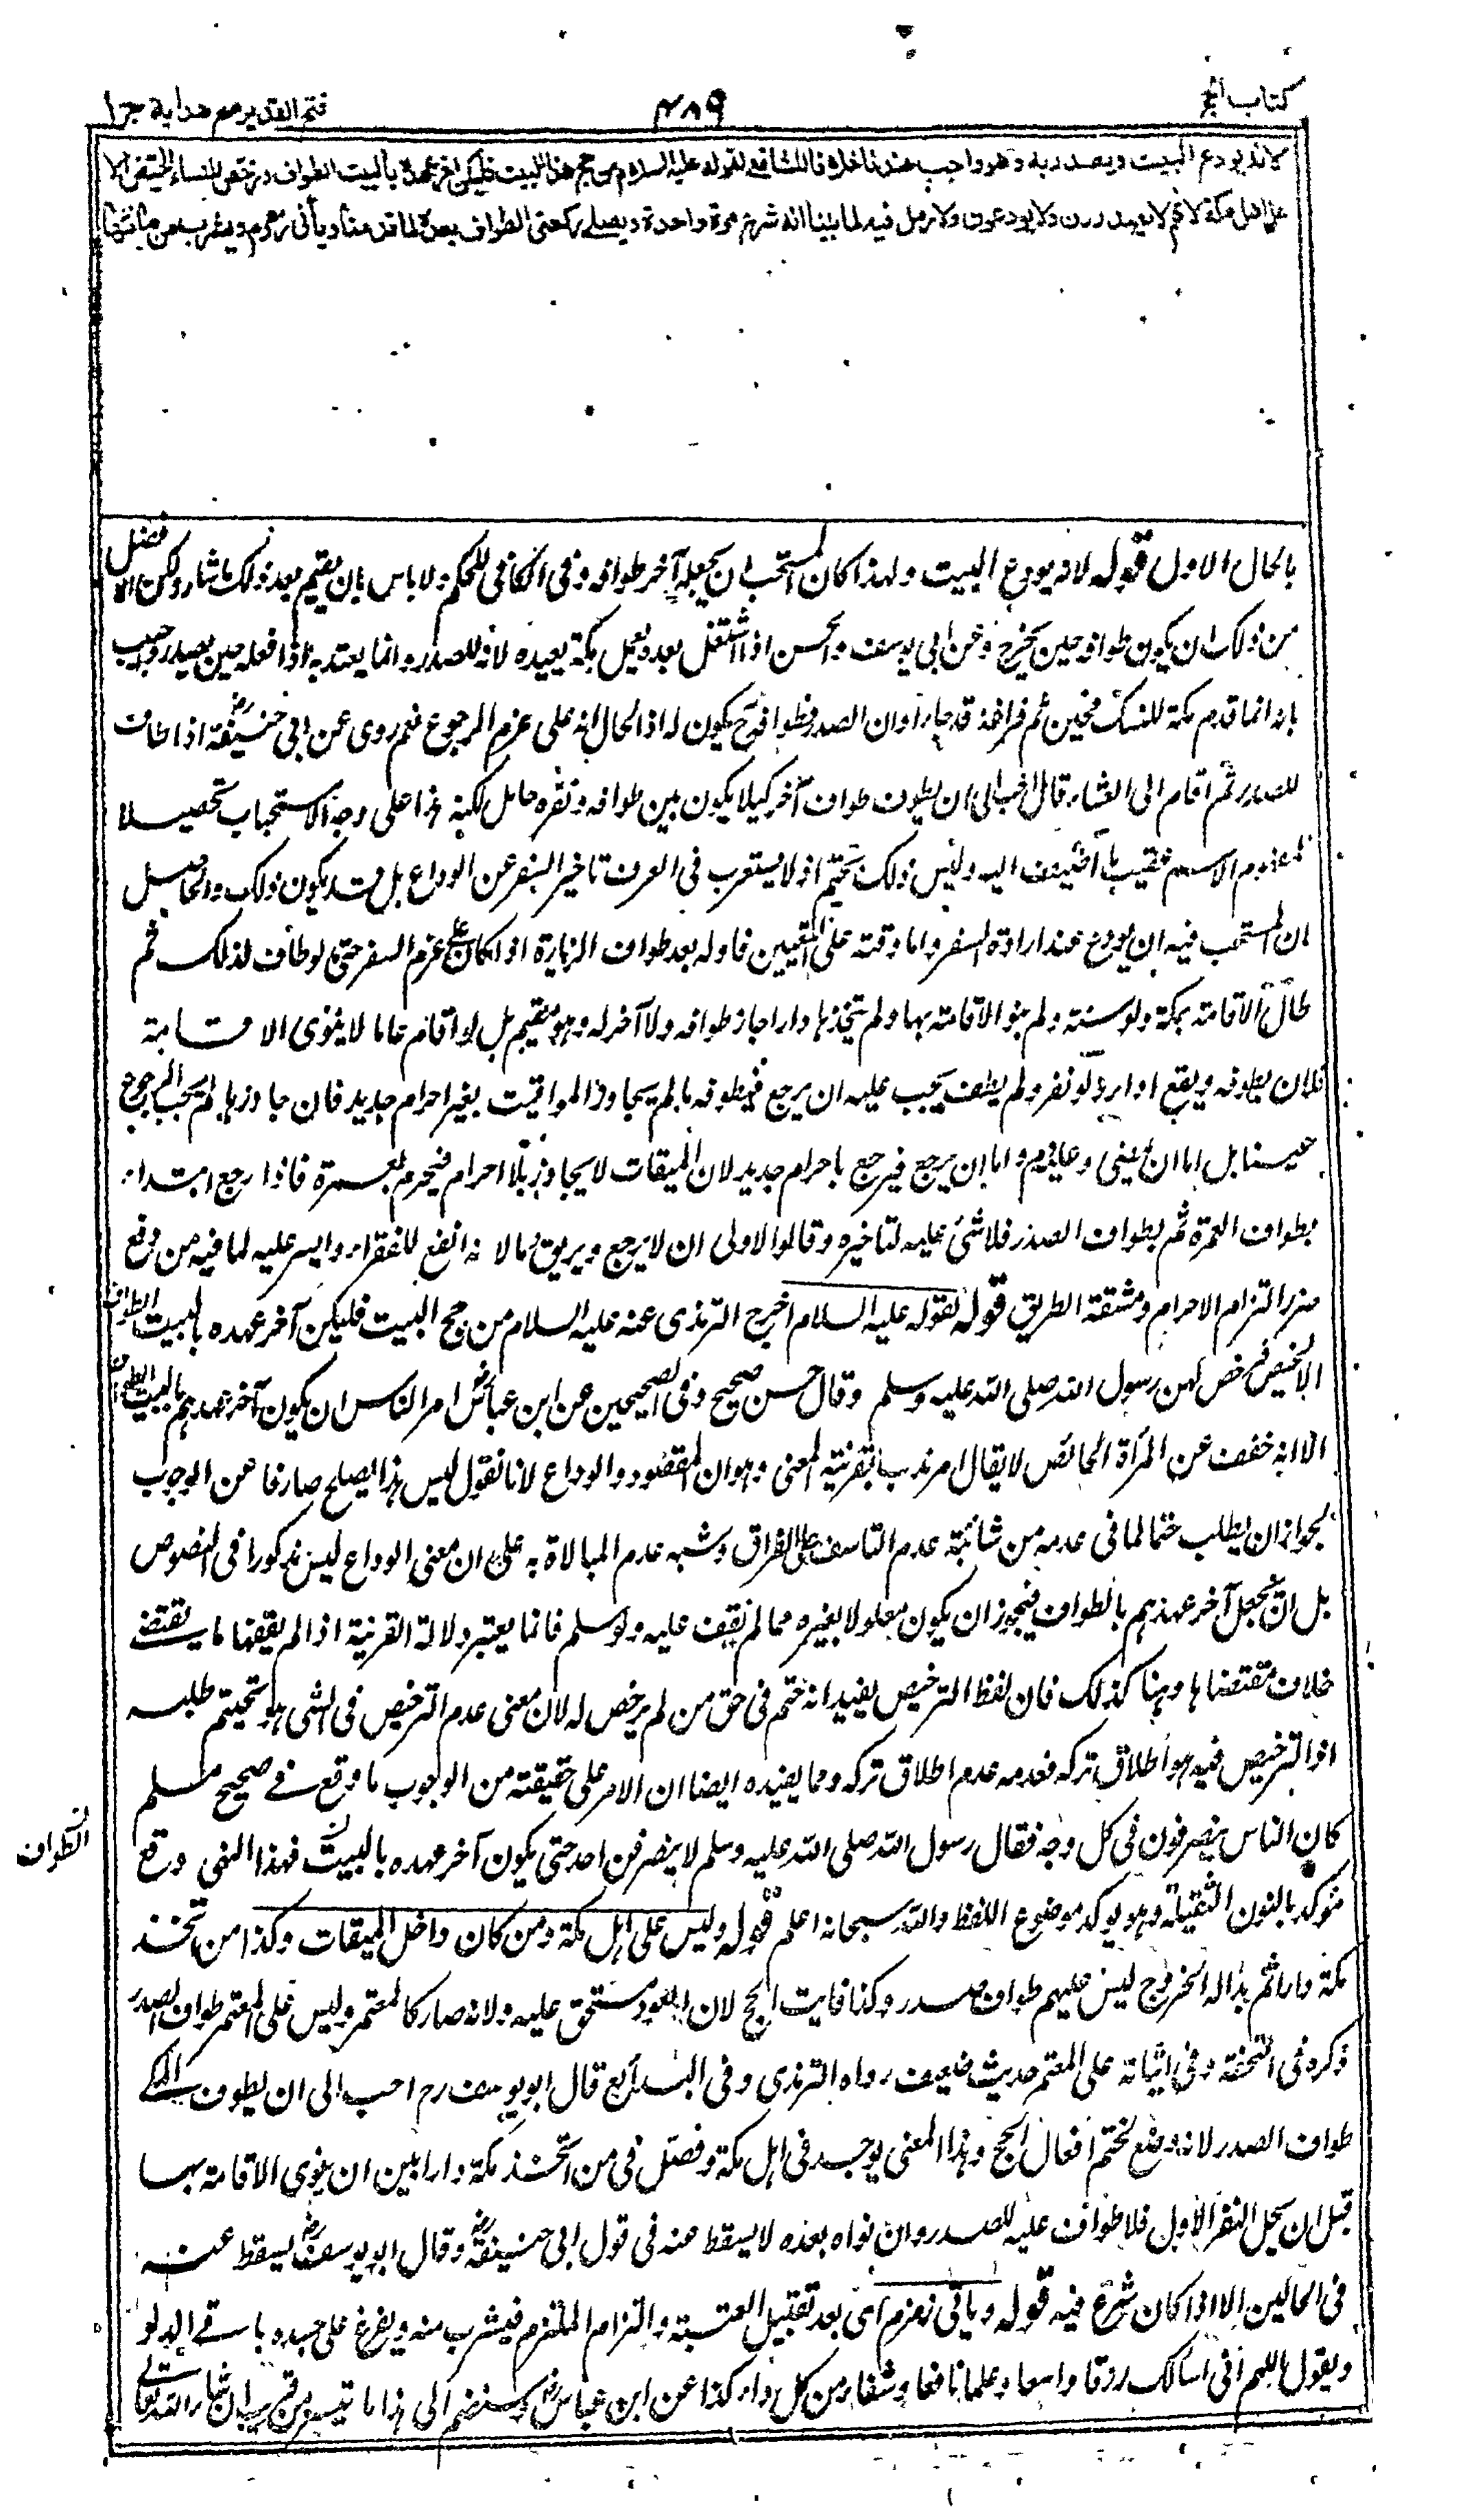 كتاب الحج
٤٨٩
فتح القدير مع هداية ج١
لانه يودع البيت ويصدر به وهو واجب عندنا خلافا للشافعي لقوله عليه السلام من حج هذا البيت فليكن اخر عهده بالبيت الطواف ورخص للنساء الحيض الا
على اهل مكة لانهم لا يصدرون ولا يودعون ولا رمل فيه لما بينا انه شرع مرة واحدة ويصلي ركعتي الطواف بعده لما قدمنا ويأتي زمزم ويشرب من مائها
بالحال الاول قوله لانه يودع البيت ولهذا كان المستحب ان يجعله آخر طوافه وفى الكافى للحاكم ولا باس بان يقيم بعد ذلك ما شاء ولكن الافضل
من ذلك ان يكون طوافه حين يخرج وعن ابى يوسف والحسن اذا اشتغل بعده بعمل بمكة يعيده لانه للصدر وانما يعتد به اذا فعله حين يصدر واجيب
بانه انما قدم مكة للنسك فحين تم فراغه منه قد جاء اوان الصدر فطوافه ح يكون له اذ الحال انه على عزم الرجوع نعم روى عن ابى حنيفة رض اذا طاف
للصدر ثم اقام الى العشاء قال احب الى ان يطوف طواف آخر كيلا يكون بين طوافه ونفره حائل لكنه هذا على وجه الاستحباب تحصيلا
لمفهوم الاسم عقيب ما اضيف اليه وليس ذلك بحتم اذ لا يستغرب فى العرف تاخير السفر عن الوداع بل قد يكون ذلك والحاصل
ان المستحب فيه ان يودع عند ارادة السفر واما وقته على التعيين فاوله بعد طواف الزيارة اذا كان على عزم السفر حتى لو طاف لذلك ثم
طال الاقامة بمكة ولو سنة ولم ينو الاقامة بها ولم يتخذها دارا جاز طوافه ولا آخر له وهو مقيم بل لو اقام عاما لا ينوى الاقامة
فله ان يطوفه ويقع اداء ولو نفر ولم يطف يجب عليه ان يرجع فيطوفه ما لم يجاوز المواقيت بغير احرام جديد فان جاوزها لم يجب الرجوع
عينا بل اما ان يمضى وعليه دم واما ان يرجع فيرجع باحرام جديد لان الميقات لا يجاوز بلا احرام فيحرم بعمرة فاذا رجع ابتداء
بطواف العمرة ثم بطواف الصدر فلا شئ عليه لتاخيره وقالوا الاولى ان لا يرجع ويريق دما لانه انفع للفقراء وايسر عليه لما فيه من دفع
ضرر التزام الاحرام ومشقة الطريق قوله لقوله عليه السلام اخرج الترمذى عنه عليه السلام من حج البيت فليكن آخر عهده بالبيت الطواف
الا الحيض رخص لهن رسول الله صلى الله عليه وسلم وقال حسن صحيح وفى الصحيحين عن ابن عباس رض امر الناس ان يكون آخر عهدهم بالبيت الطواف
الا انه خفف عن المرأة الحائض لا يقال امر ندب بقرينة المعنى وهو ان المقصود الوداع لانا نقول ليس هذا يصلح صارفا عن الوجوب
لجواز ان يطلب حتما لما فى عدمه من شائبة عدم التاسف على الفراق وشبه عدم المبالاة به على ان معنى الوداع ليس مذكورا فى النصوص
بل ان يجعل آخر عهدهم بالطواف فيجوز ان يكون معلولا بغيره مما لم نقف عليه ولو سلم فانما يعتبر دلالة القرينة اذا لم يقفها ما يقتضى
خلاف مقتضاها وهنا كذلك فان لفظ الترخيص يفيد انه حتم فى حق من لم يرخص له لان معنى عدم الترخيص فى الشئ هو تحتيم طلبه
اذ الترخيص فيه هو اطلاق تركه فعدمه عدم اطلاق تركه ومما يفيده ايضا ان الامر على حقيقته من الوجوب ما وقع فى صحيح مسلم
كان الناس ينصرفون فى كل وجه فقال رسول الله صلى الله عليه وسلم لا ينصرفن احد حتى يكون آخر عهده بالبيت فهذا النفى وقع
الطواف
مؤكد بالنون الثقيلة وهو يوكد موضوع اللفظ والله سبحانه اعلم قوله وليس على اهل مكة ومن كان داخل الميقات وكذا من تخذ
مكة دارا ثم بدا له الخروج ليس عليهم طواف صدر وكذا فايت الحج لان العود مستحق عليه ولانه صار كالمعتمر وليس على المعتمر طواف الصدر
ذكره فى التحفة وفى اثباته على المعتمر حديث ضعيف رواه الترمذى وفى البدائع قال ابو يوسف رح احب الى ان يطوف المكى
طواف الصدر لانه وضع لختم افعال الحج وهذا المعنى يوجد فى اهل مكة وفصل فى من اتخذ مكة دارا بين ان ينوى الاقامة بها
قبل ان يحل النفر الاول فلا طواف عليه للصدر وان نواه بعده لا يسقط عنه فى قول ابى حنيفة رض وقال ابو يوسف رض يسقط عنه
فى الحالين الا اذا كان شرع فيه قوله وياتى زمزم اى بعد تقبيل العتبة والتزام الملتزم فيشرب منه ويفرغ على جسده باقى الدلو
ويقول اللهم انى اسالك رزقا واسعا وعلما نافعا وشفاء من كل داء كذا عن ابن عباس رض وسنضم الى هذا ما تيسر من قريب ان شاء الله تعالى